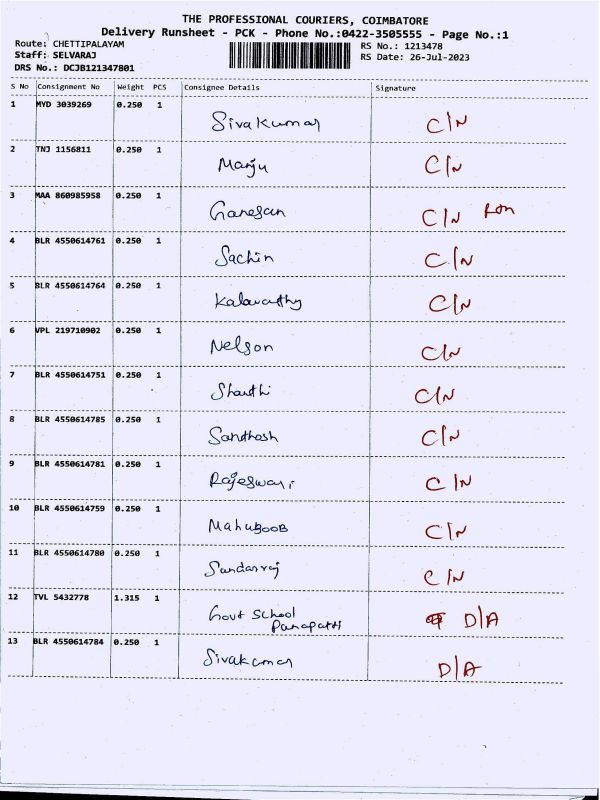 THE PROFESSIONAL COURIERS, COIMBATORE
Delivery Runsheet - PCK - Phone No.:0422-3505555 - Page No.:1
Route: CHETTIPALAYAM RS No.: 1213478
Staff: SELVARAJ RS Date: 26-Jul-2023
DRS No.: DCJB121347801
S No Consignment No Weight PCS Consignee Details Signature
1 MYD 3039269 0.250 1 Sivakumar C/N
2 TNJ 1156811 0.250 1 Manju C/N
3 MAA 860985958 0.250 1 Ganesan C/N
4 BLR 4550614761 0.250 1 Sachin C/N
5 BLR 4550614764 0.250 1 Kalavathy C/N
6 VPL 219710902 0.250 1 Nelson C/N
7 BLR 4550614751 0.250 1 Shanthi C/N
8 BLR 4550614785 0.250 1 Santhosh C/N
9 BLR 4550614781 0.250 1 Rajeswari C/N
10 BLR 4550614759 0.250 1 MahuBOOB C/N
11 BLR 4550614780 0.250 1 Sundarraj C/N
12 TVL 5432778 1.315 1 Govt School D/A
Panapatti
13 BLR 4550614784 0.250 1 Sivakumar D/A